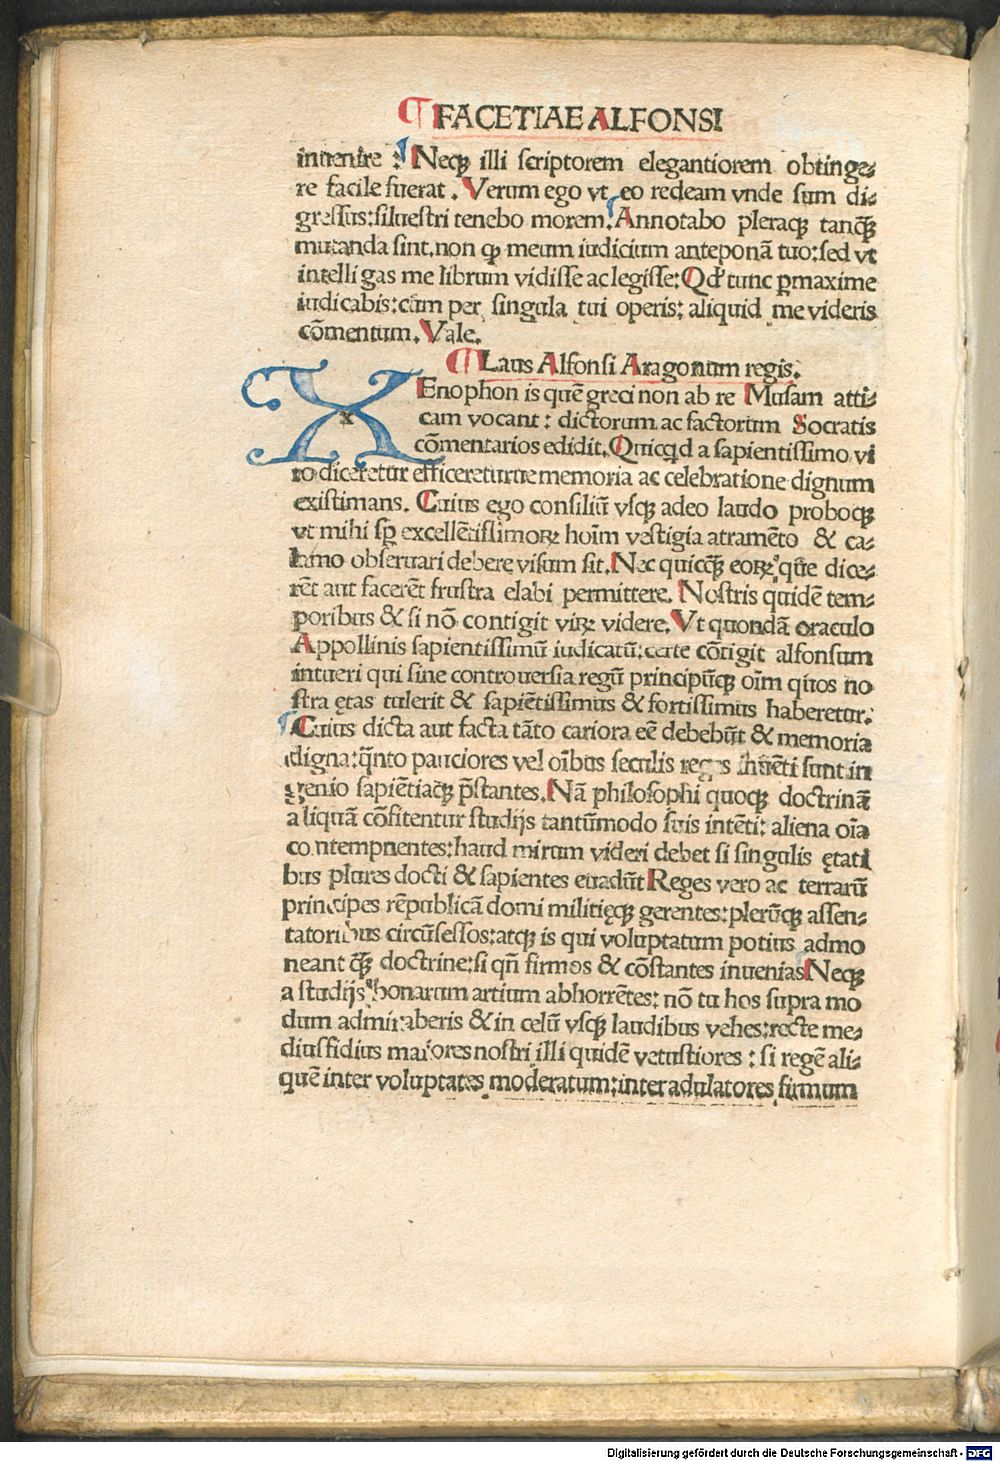 ¶ FACETIAE ALFONSI
inuenire : Neqꝫ illi scriptorem elegantiorem obtinge⸗
re facile fuerat . Verum ego vt eo redeam vnde sum di⸗
gressus:siluestri tenebo morem. Annotabo pleraqꝫ tanꝗꝫ
mutanda sint.non ꝙ meum iudicium anteponā tuo:sed vt
intelligas me librum vidisse ac legisse:Qđ tunc ꝑmaxime
iudicabis:cum per singula tui operis: aliquid me videris
cōmentum. Vale.
¶ Laus Alfonsi Aragonum regis.
XEnophon is quē greci non ab re Musam atti⸗
cam vocant : dictorum ac factorum Socratis
cōmentarios edidit.Quicqͥd a sapientissimo vi
ro diceretur efficereturue memoria ac celebratione dignum
existimans. Cuius ego consiliū vsqꝫ adeo laudo proboqꝫ
vt mihi sꝑ excellētissimoꝝ hoīm vestigia atramēto & ca⸗
lamo obseruari debere visum sit.Nec quicꝗꝫ eoꝝ que dice⸗
rēt aut facerēt frustra elabi permittere. Nostris quidē tem⸗
poribus & si nō contigit viꝝ videre.Vt quondā oraculo
Appollinis sapientissimū iudicatū:certe cōtigit alfonsum
intueri qui sine controuersia regū principūqꝫ oīm quos no
stra ętas tulerit & sapiētissimus & fortissimus haberetur.
Cuius dicta aut facta tāto cariora eē debebūt & memoria
digna:ꝗ̄nto pauciores vel oībus seculis reges inuēti sunt in
genio sapiētiaqꝫ p̄stantes.Nā philosophi quoqꝫ doctrinā
aliquā cōfitentur studijs tantūmodo suis intēti: aliena oīa
contempnentes:haud mirum videri debet si singulis ętati
bus plures docti & sapientes euadūt Reges vero ac terrarū
principes rēpublicā domi militięqꝫ gerentes:plerūqꝫ assen⸗
tatoribus circūsessos:atqꝫ is qui voluptatum potius admo
neant ꝗꝫ doctrine:si qn̄ firmos & cōstantes inuenias Neqꝫ
a studijs bonarum artium abhorrētes: nō tu hos supra mo
dum admiraberis & in celū vsqꝫ laudibus vehes:recte me⸗
diusfidius maiores nostri illi quidē vetustiores : si regē ali⸗
quē inter voluptates moderatum:inter adulatores firmum
Digitalisierung gefördert durch die Deutsche Forschungsgemeinschaft - DFG